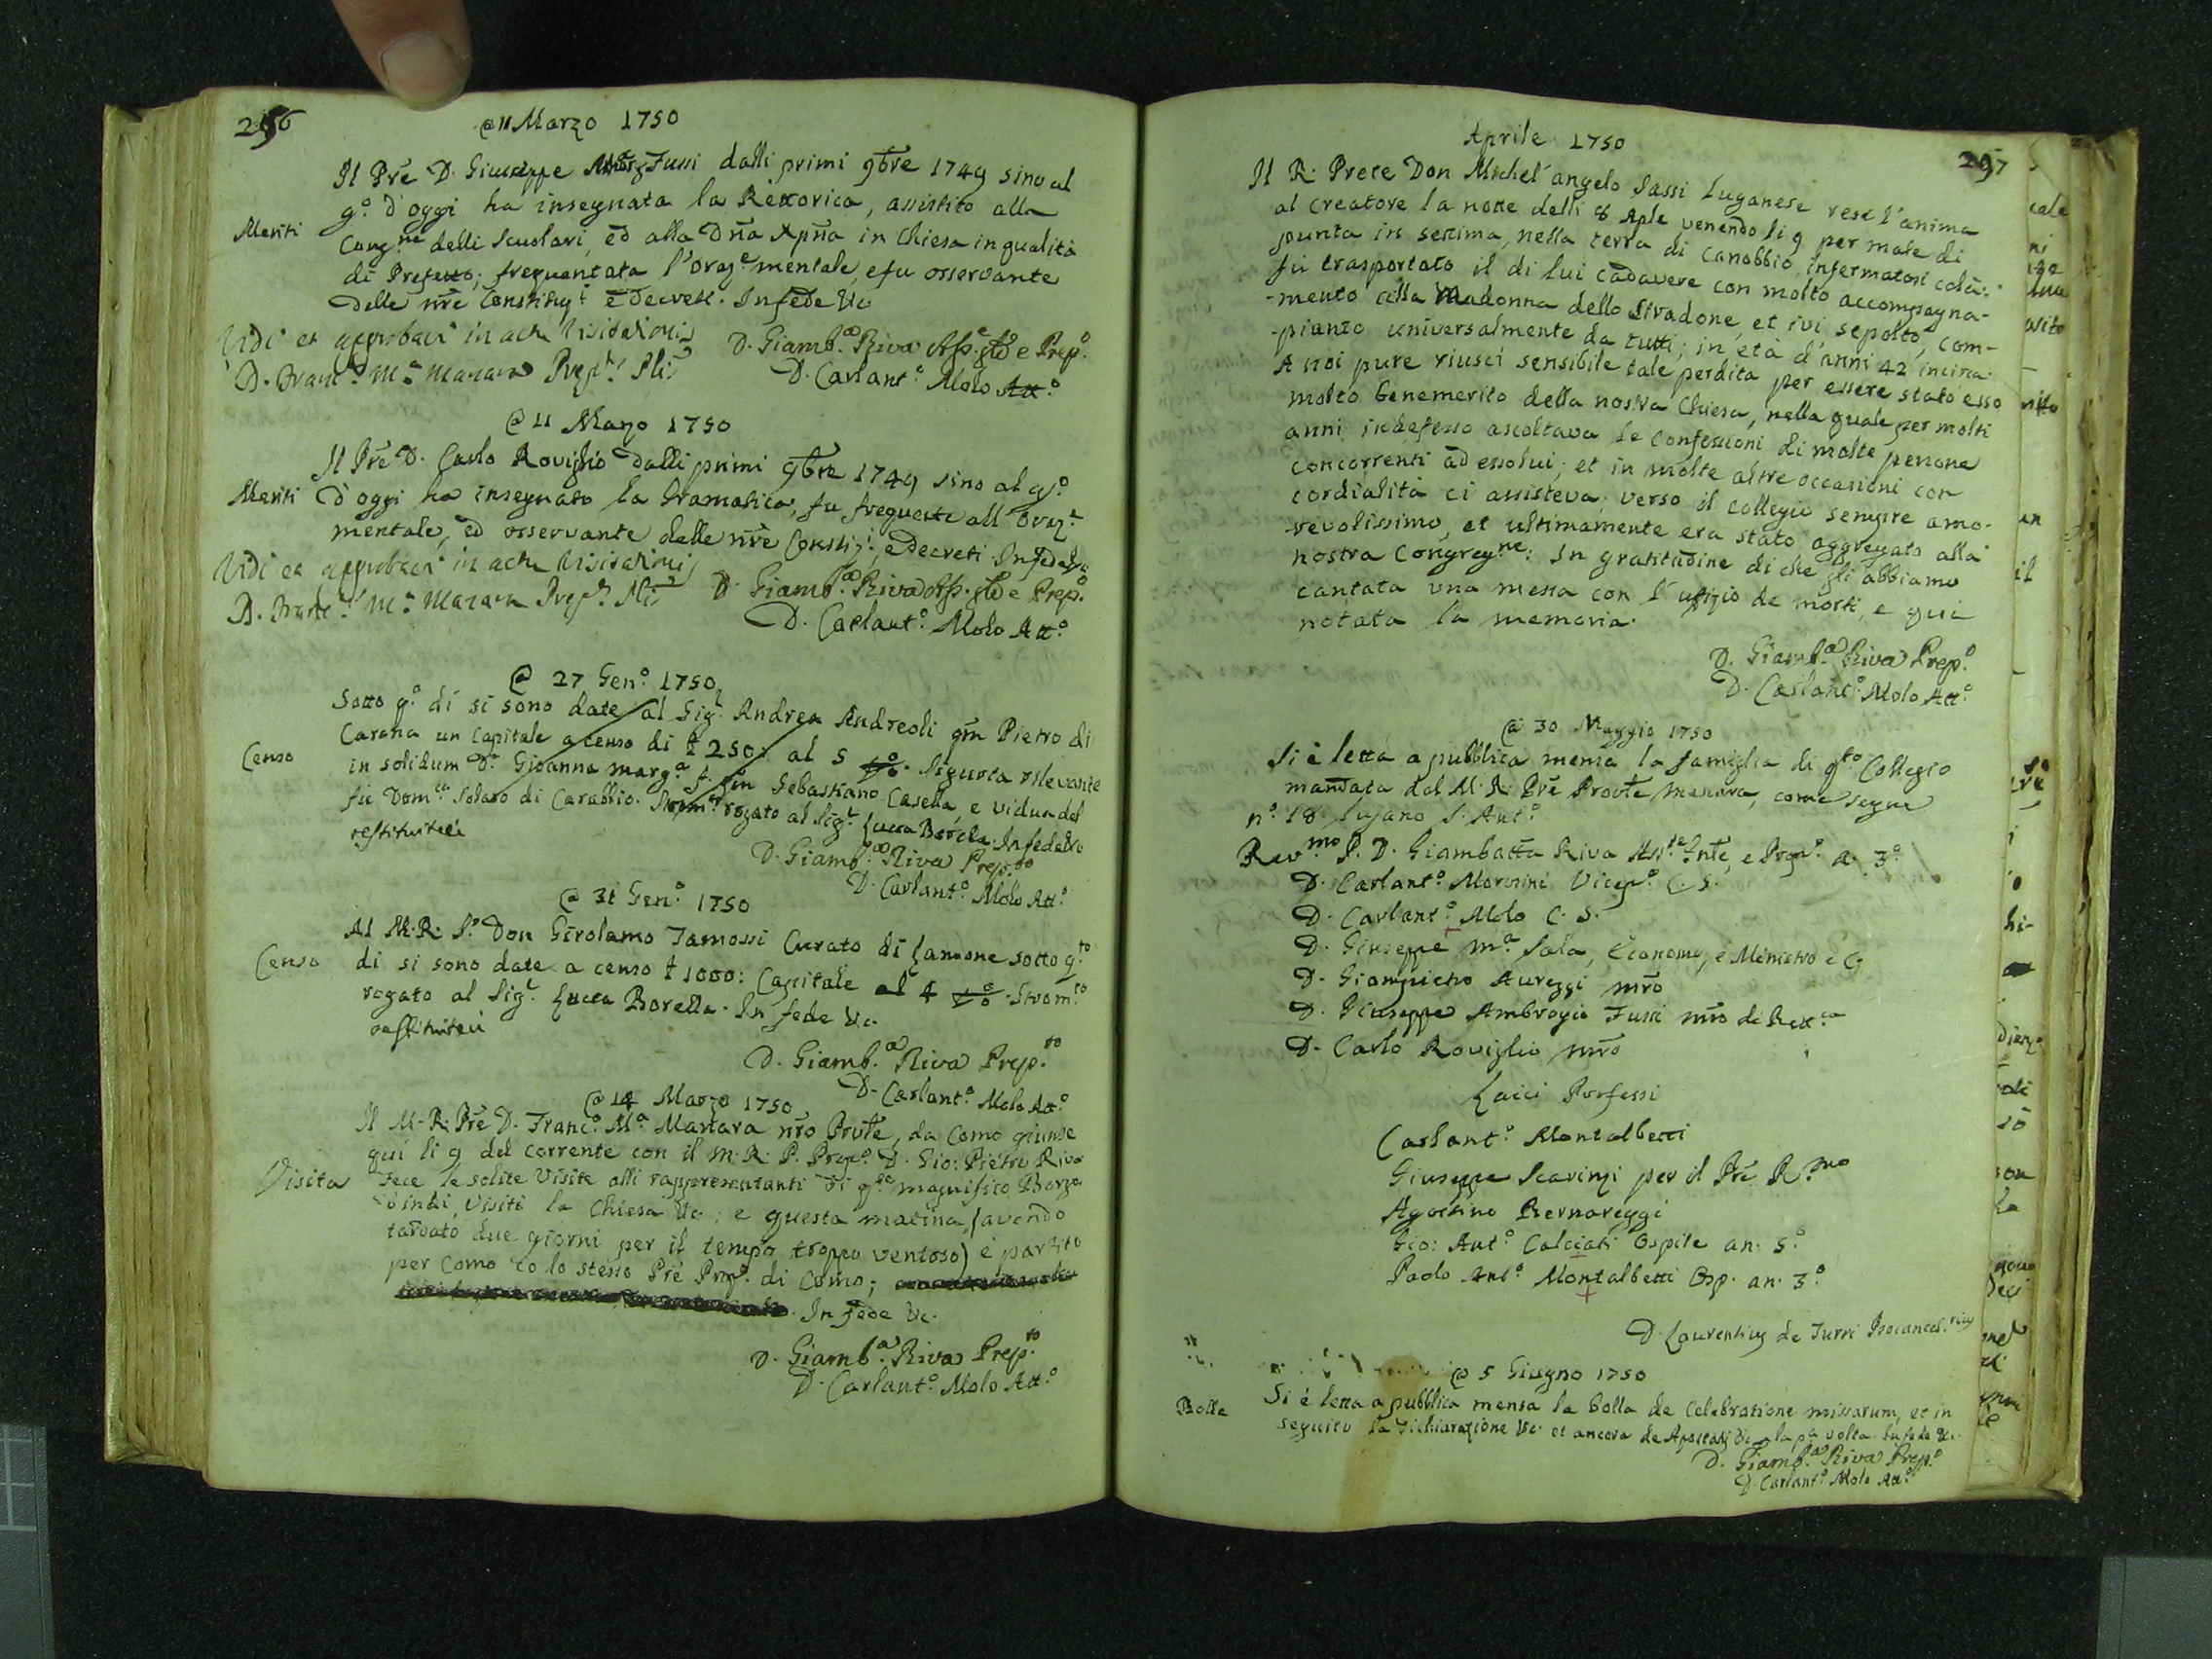 256
@ 11 Marzo 1750
Il Prē D. Giuseppe Fussi dalli primi 9bre 1749 sino al
g.º d'oggi ha insegnata la Rettorica, assistito alla
Meriti
Cong.ne delli Scuolari, ed alla Dña Xpña in Chiesa in qualità
di Prefetto; frequentata l'Oraz.e mentale, e fu osservante
delle nrē Constituz.i e Decreti. In fede &c
Vidi et approbavi in actu Visitationis
D. Giamb.a Riva Ass.e gñle e Prep.º
D. Franc.s M.a Manara Prep.s Plis
D. Carlant.º Molo Att.º
@ 11 Marzo 1750
Il Prē D. Carlo Roviglio dalli primi 9bre 1749 sino al gº.
Meriti
d'oggi ha insegnato la Gramatica, fu frequente all'Oraz.e
mentale, ed osservante delle nrē Constiz.i, e decreti. In fede &c
Vidi et approbavi in actu Visitationis
D. Giamb.a Riva Ass. gñle e Prep.º
D. Franc.s M.a Manara Prep.s Plis
D. Carlant.º Molo Att.º
@ 27 Gen.º 1750
Sotto q.º di si sono date al Sig.r Andrea Andreoli qm Pietro di
Carona un Capitale a censo di £ 250: al 5 p%. Sigurtà rilevante
Censo
in solidum D.a Gioanna Marg.a f. qm Sebastiano Casella, e vidua del
fu Dom.co Solaro di Carabbio. Strom.to rogato al Sig.r Lucca Borella. In fede &c
restituitevi
D. Giamb.a Riva Prep.to
D. Carlant.º Molo Att.º
@ 31 Gen.º 1750
Al M.R. S.r Don Girolamo Tamossi Curato di Lamone sotto q.to
Censo
di si sono date a censo £ 1000: Capitale al 4 p%. Strom.to
rogato al Sig.r Lucca Borella. In fede &c.
restituitevi
D. Giamb.a Riva Prep.to
D. Carlant.º Molo Att.º
@ 14 Marzo 1750
Il M.R. Prē D. Franc.º M.a Manara nrō Prōvle, da Como giunse
qui li 9 del corrente con il M.R. P. Prep.º D. Gio: Pietro Riva
Visita
Fece le solite Visite alli rappresentanti di q.to magnifico Borgo
indi, visitò la Chiesa &c; e questa matina, (avendo
tardato due giorni per il tempo troppo ventoso) è partito
per Como co lo stesso Prē Prep.º di Como;
In fede &c.
D. Giamb.a Riva Prep.to
D. Carlant.º Molo Att.º
Aprile 1750
257
Il R. Prete Don Michel'angelo Sassi Luganese rese l'anima
al Creatore la notte delli 8 Aple venendo li 9 per male di
punta in settima, nella terra di Canobbio, infermatosi colà:
fù trasportato il di lui cadavere con molto accompagna-
-mento alla Madonna dello Stradone, et ivi sepolto, com-
-pianto universalmente da tutti; in età d'anni 42 incirca.
A noi pure riuscì sensibile tale perdita per essere stato esso
molto benemerito della nostra Chiesa, nella quale per molti
anni indefesso ascoltava le confessioni di molte persone
concorrenti ad essolui; et in molte altre occasioni con
cordialità ci assisteva; verso il collegio sempre amo-
-revolissimo, et ultimamente era stato aggregato alla
nostra Congreg.ne: In gratitudine di che gli abbiamo
cantata una messa con l'ufizio de morti, e qui
notata la memoria.
D. Giamb.a Riva Prep.º
D. Carlant.º Molo Att.º
@ 30 Maggio 1750
Si è letta a pubblica mensa la famiglia di q.to Collegio
mandata dal M.R. Prē Provle Manara, come segue
nº. 18 Lugano S. Ant.º
Rev.mo P. D. Giambatta Riva Ass.te Gñle, e Prep.º a. 3.º
D. Carlant.º Morosini Vicep.º C. S.
D. Carlant.º Molo C. S.
D. Giuseppe M.a Sala, Economo, e Ministro è C.
D. Giampietro Aureggi mrō
D. Giuseppe Ambrogio Fussi mrō di Rett.ca
D. Carlo Roviglio mrō
Laici Professi
Carlant.º Montalbetti
Giuseppe Scaringi per il Prē R.mo
Agostino Bernareggi
Gio: Ant.º Calciati Ospite an. 5.º
Paolo Ant.º Montalbetti Osp. an. 3.º
D. Laurentius de Turri Procancel.rius
@ 5 Giugno 1750
Bolle
Si è letta a pubblica mensa la bolla de Celebratione missarum, et in
seguito la dichiarazione &c. et ancora de Apostatis &c la p.a volta. In fede &c.
D. Giamb.a Riva Prep.º
D. Carlant.º Molo Att.º